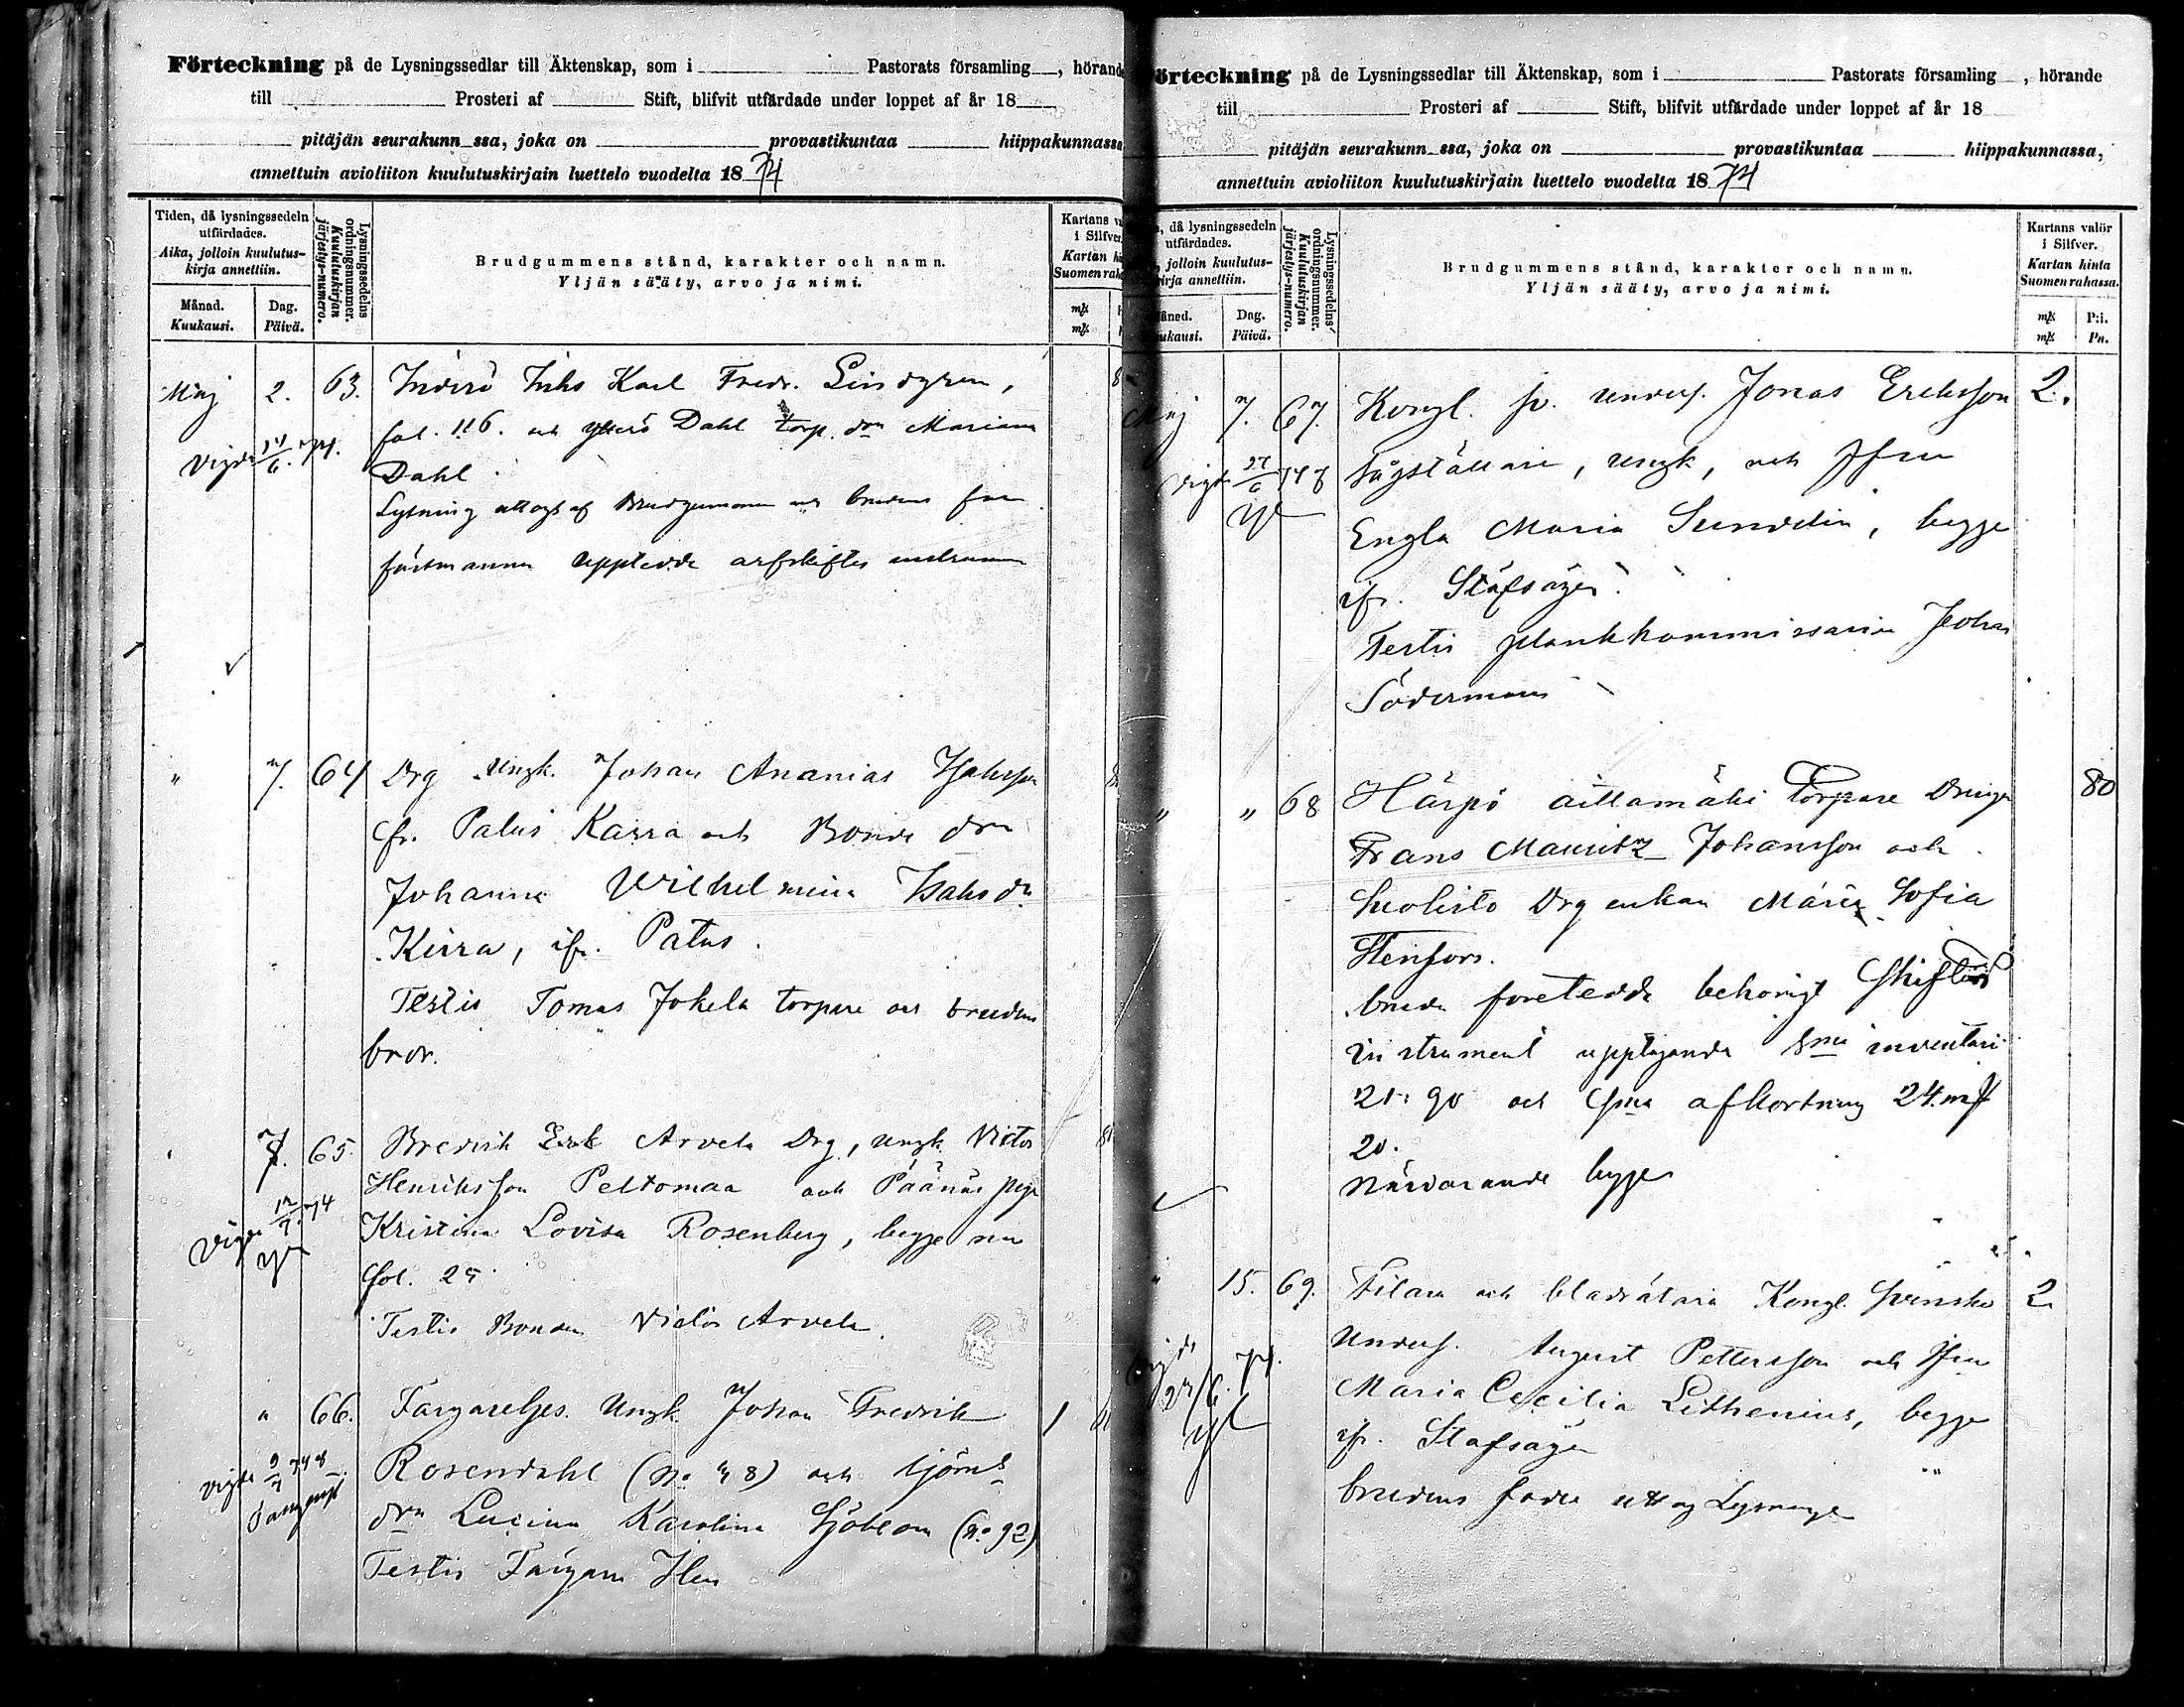 Förteckning på de Lysningssedlar till Äktenskap, som i Pastorats församling , hörande
till Prosteri af Stift, blifvit utfärdade under loppet af år 18
pitäjän seurakunn ssa, joka on provastikuntaa hiippakunnassa
annettuin avioliiton kuulutuskirjain luettelo vuodelta 18 74
Tiden, då lysningssedeln
utfärdades.
Aika, jolloin kuulutus-
kirja annettiin.
Månad.
Kuukausi.
Dag.
Päivä.
Lysningssedelns
ordningsnummer.
Kuulutuskirjan
järjestys-numero.
Brudgummens stånd, karakter och namn.
Yljän sääty, arvo ja nimi.
Kartans
i Silfver.
Kartan
Suomen
mk
mk
Maj 2. 63. Karl Fredr. Lindgren,
fol. 116. och Dahl torp. drn Mariana
Vigde 14/6. 74.
Dahl
Lysning uttogs af Brudgummen och brudens
företedde arfskiftes
" 7. 64 Drg Ungk. Johan Ananias Isaksson
fr. Palus Karra och Bonde drn
Johanna Wilhelmina Isaksdr
Kirra, ifr. Palus.
Testis Tomas Jokela torpare och brudens
bror.
7. 65. Arvela Drg, ungk. Victor
Henriksson Peltomaa och Päänäs piga
Vigde 12/7. 74
Kristina Lovisa Rosenberg, begge
fol. 25.
Testis Bonden Victor Arvela.
" 66. Färgareges. Ungk. Johan Fredrik 1
Vigde
Rosendahl (No 48) och
drn Lucina Karolina Sjöblom (No 92)
Testis Färgare
Förteckning på de Lysningssedlar till Äktenskap, som i Pastorats församling , hörande
till Prosteri af Stift, blifvit utfärdade under loppet af år 18
pitäjän seurakunn ssa, joka on provastikuntaa hiippakunnassa,
annettuin avioliiton kuulutuskirjain luettelo vuodelta 18 74
då lysningssedeln
utfärdades.
jolloin kuulutus-
kirja annettiin.
Månad.
Kuukausi.
Dag.
Päivä.
Lysningssedelns
ordningsnummer.
Kuulutuskirjan
järjestys-numero.
Brudgummens stånd, karakter och namn.
Yljän sääty, arvo ja nimi.
Kartans valör
i Silfver.
Kartan hinta
Suomen rahassa.
mk P:i.
mk Pn.
Maj 7. 67. Kongl. sv. unders. Jonas Eriksson 2.
Sågställare, ungk, och Jfru
Vigde 27/6 74
Engla Maria Sundelin, begge
ifr. Stafsågen.
Testis plankkommissarien Johan
Söderman
" " 68 Härpö aittamäki Torpare Dreng 80
Frans Mauritz Johansson och
Suolisto Drg enkan Maria Sofia
Stenfors.
bruden företedde behörigt Skiftes
instrument upptagande Sma inventari
21: 90 och Sma afkortning 24. mk
20.
Närvarande begge
" 15. 69. Filare och bladrätare Kongl. Svenska 2
Unders. August Pettersson och Jfru
Vigde 27/6. 74.
Maria Cecilia Lithenius, begge
ifr. Stafsågen
brudens fader uttog Lysninge